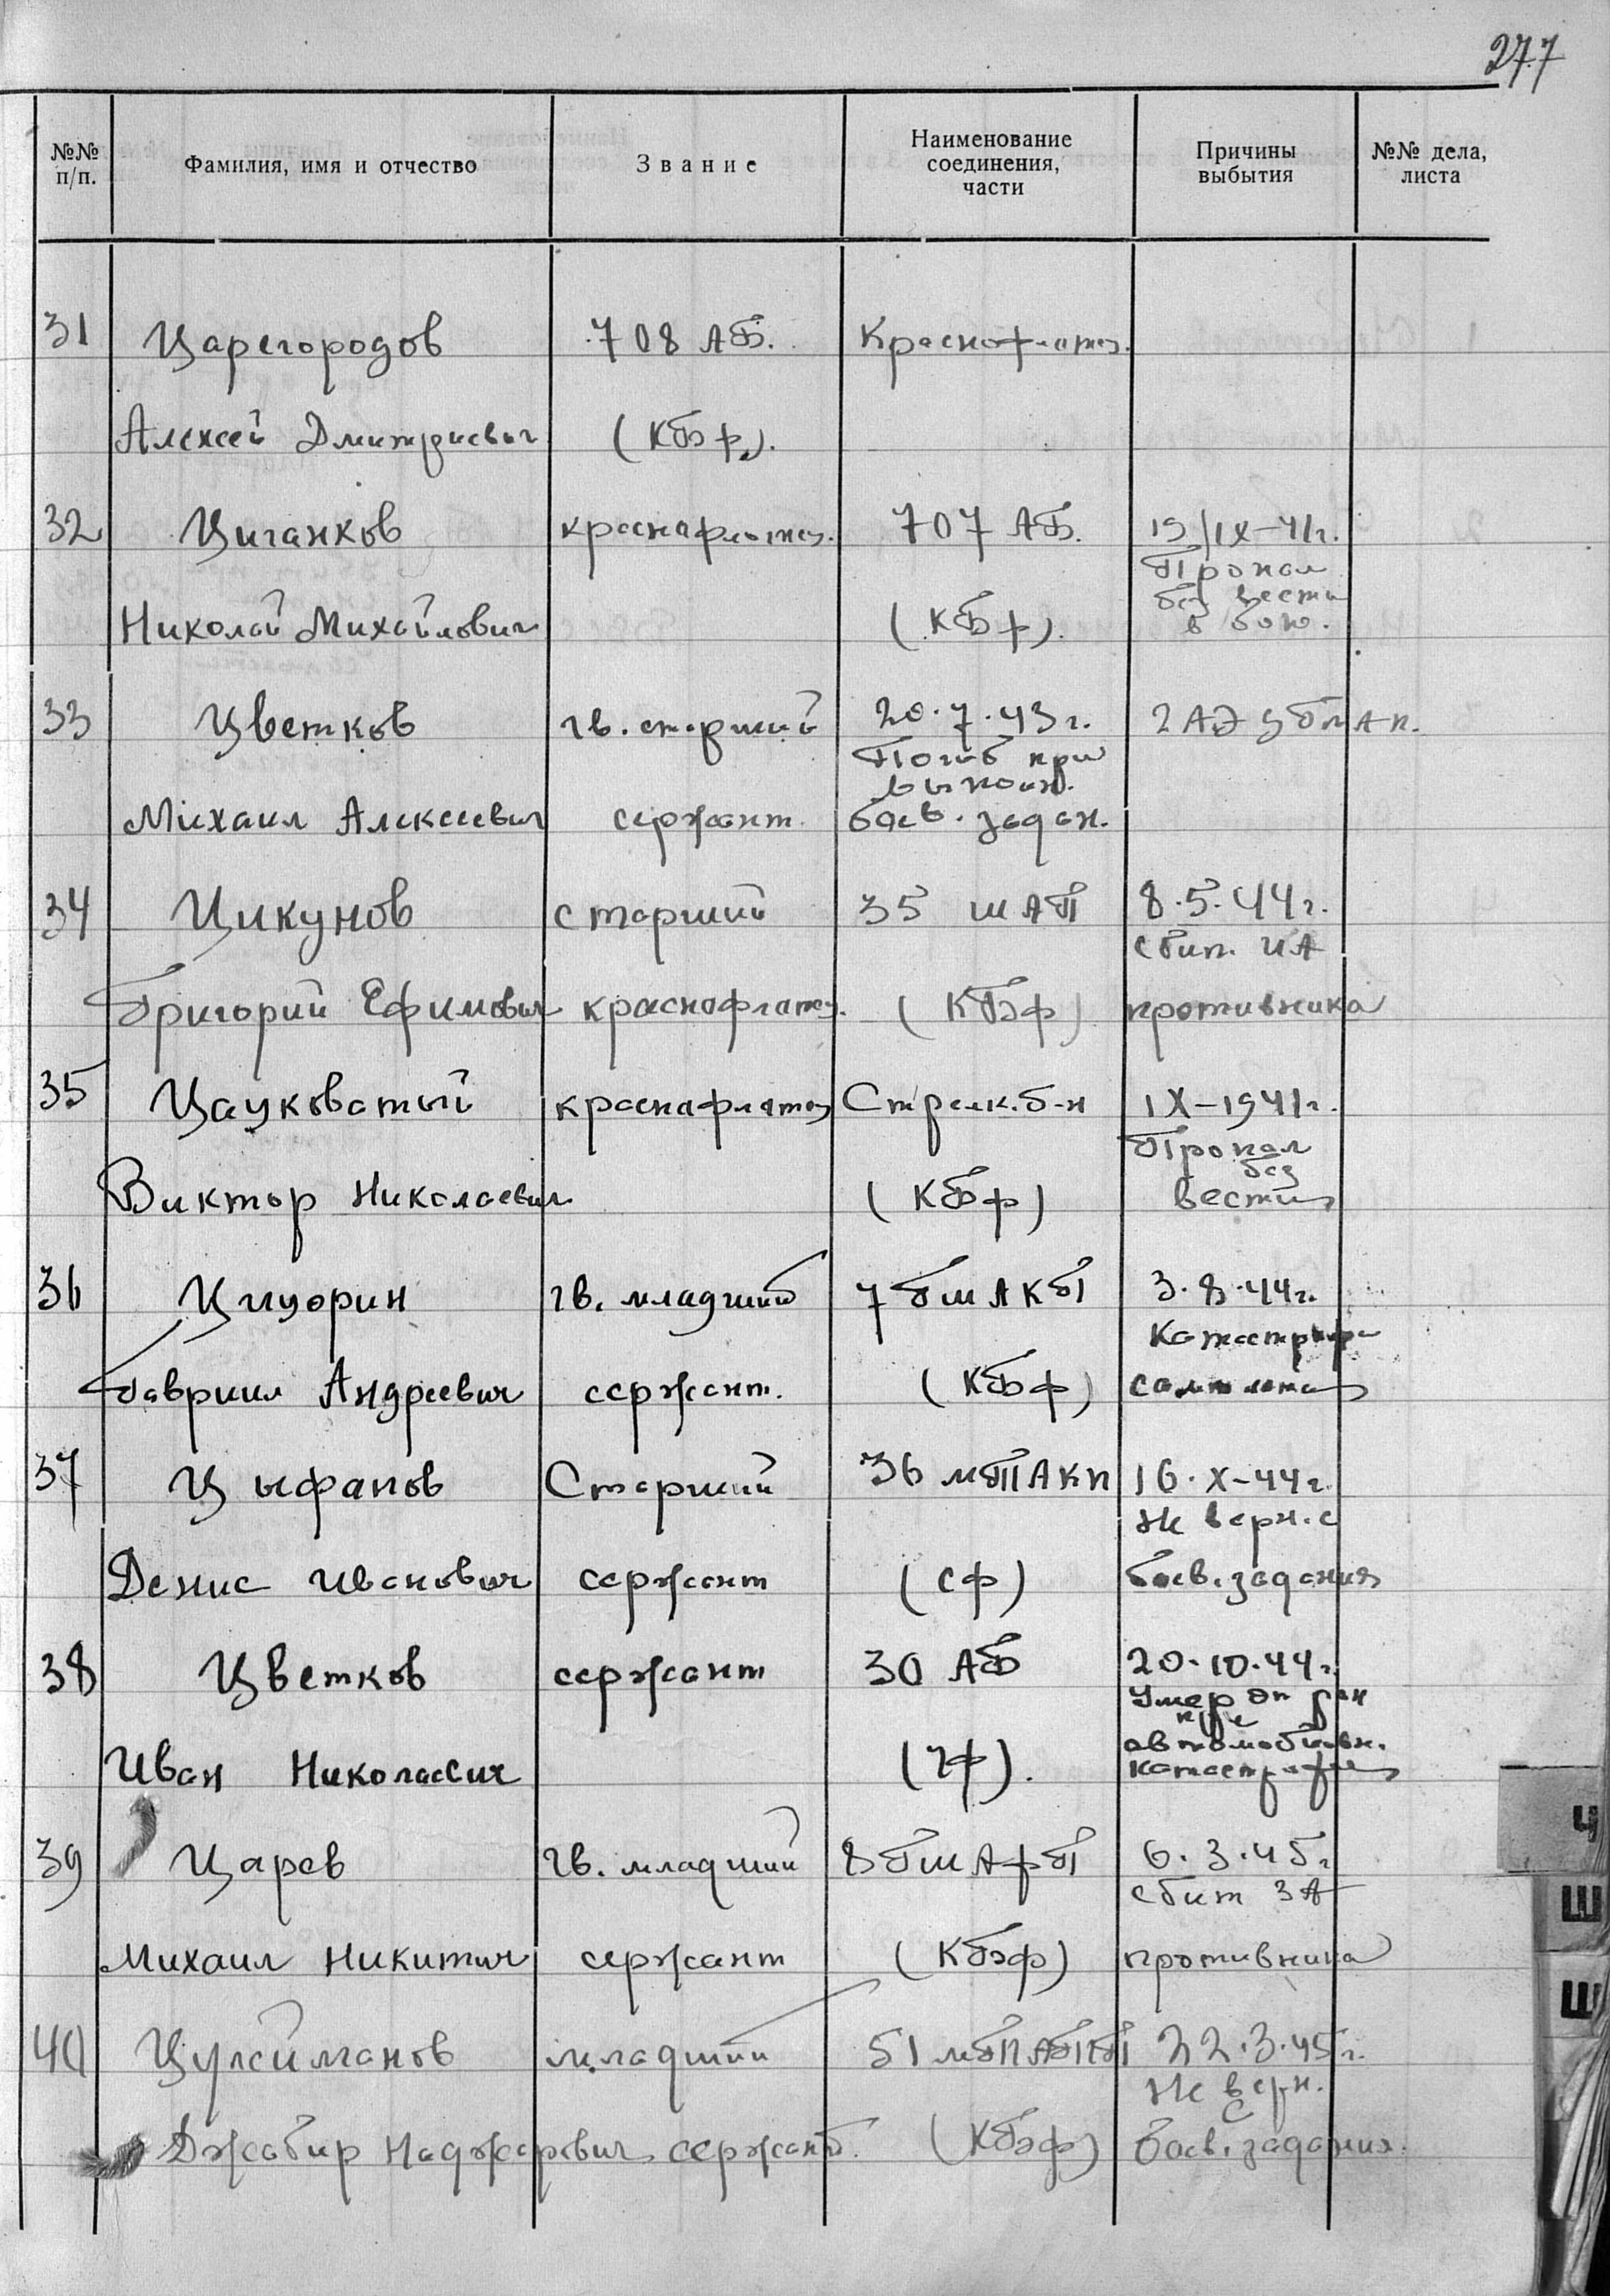 277
№№ п/п. Фамилия, имя и отчество Звание Наименование соединения, части Причины выбытия №№ дела, листа
31 Царегородов 708 АБ. Краснофлотец.
Алексей Дмитриевич (КБФ).
32 Циганков краснофлотец. 707 АБ. 19/IX-41г.
Пропал
без вести
Николай Михайлович (КБФ). в бою.
33 Цветков гв. старший 20.7.43г. 2 АЭ
Погиб при
выполн.
Михаил Алексеевич сержант. боев. задан.
34 Цикунов старший 35 ШАП 8.5.44г.
сбит. ИА
Григорий Ефимович краснофлотец. (КБФ) противника
35 Цауковатый краснофлотец Стрелк. б-н IX-1941г.
Пропал
без
Виктор Николаевич (КБФ) вести
36 гв. младший 7 3.8.44г.
Катастрофа
Гавриил Андреевич сержант. (КБФ) самолета
37 Цыфанов Старший 36 МТАКП 16.X-44г.
Не верн. с
Денис Иванович сержант (СФ) боев. задания
38 Цветков сержант 30 АБ 20.10.44г.
Умер от ран
при
автомобильн.
Иван Николаевич (ЧФ). катастрофе
39 Царев гв. младший 8 6.3.45г
сбит ЗА
Михаил Никитич сержант (КБФ) противника
40 младший 51 22.3.45г.
Не верн.
с
Джабир Наджарович сержант. (КБФ) боев. задания.
Ч
Ш